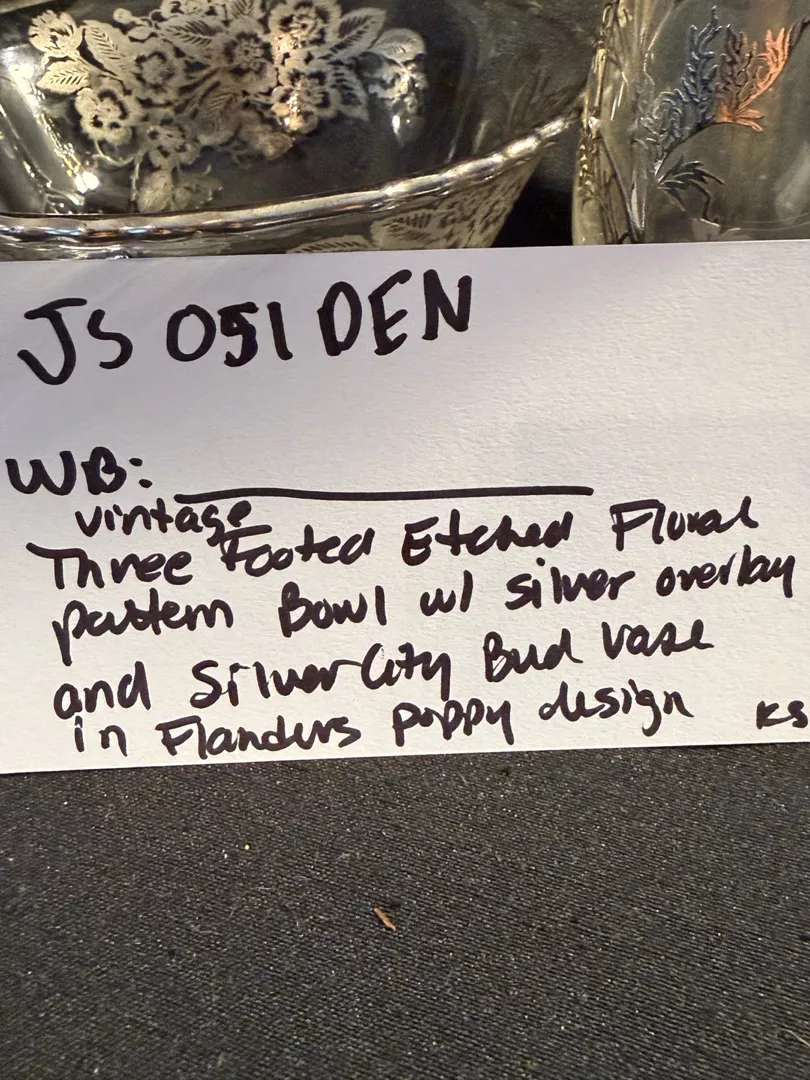 JS 051 DEN
WB: ________
vintage
Three Footed Etched Floral
pattern Bowl w/ silver overlay
and Silver City Bud Vase
in Flanders poppy design KS